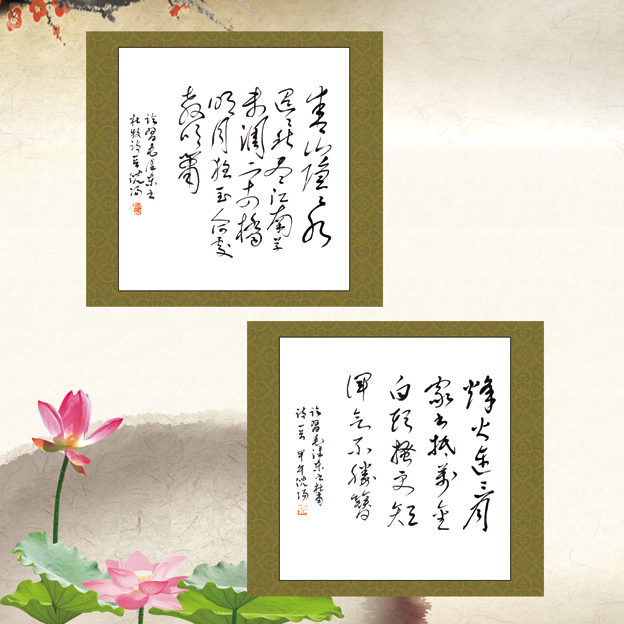 青山隱隱水
迢迢秋盡江南草
未凋二十四橋
明月夜玉人何處
教吹簫
临习毛泽东书
杜牧诗 沈
烽火连三月
家书抵万金
白头搔更短
浑欲不胜簪
临习毛泽东书杜甫
诗一首 甲午 沈